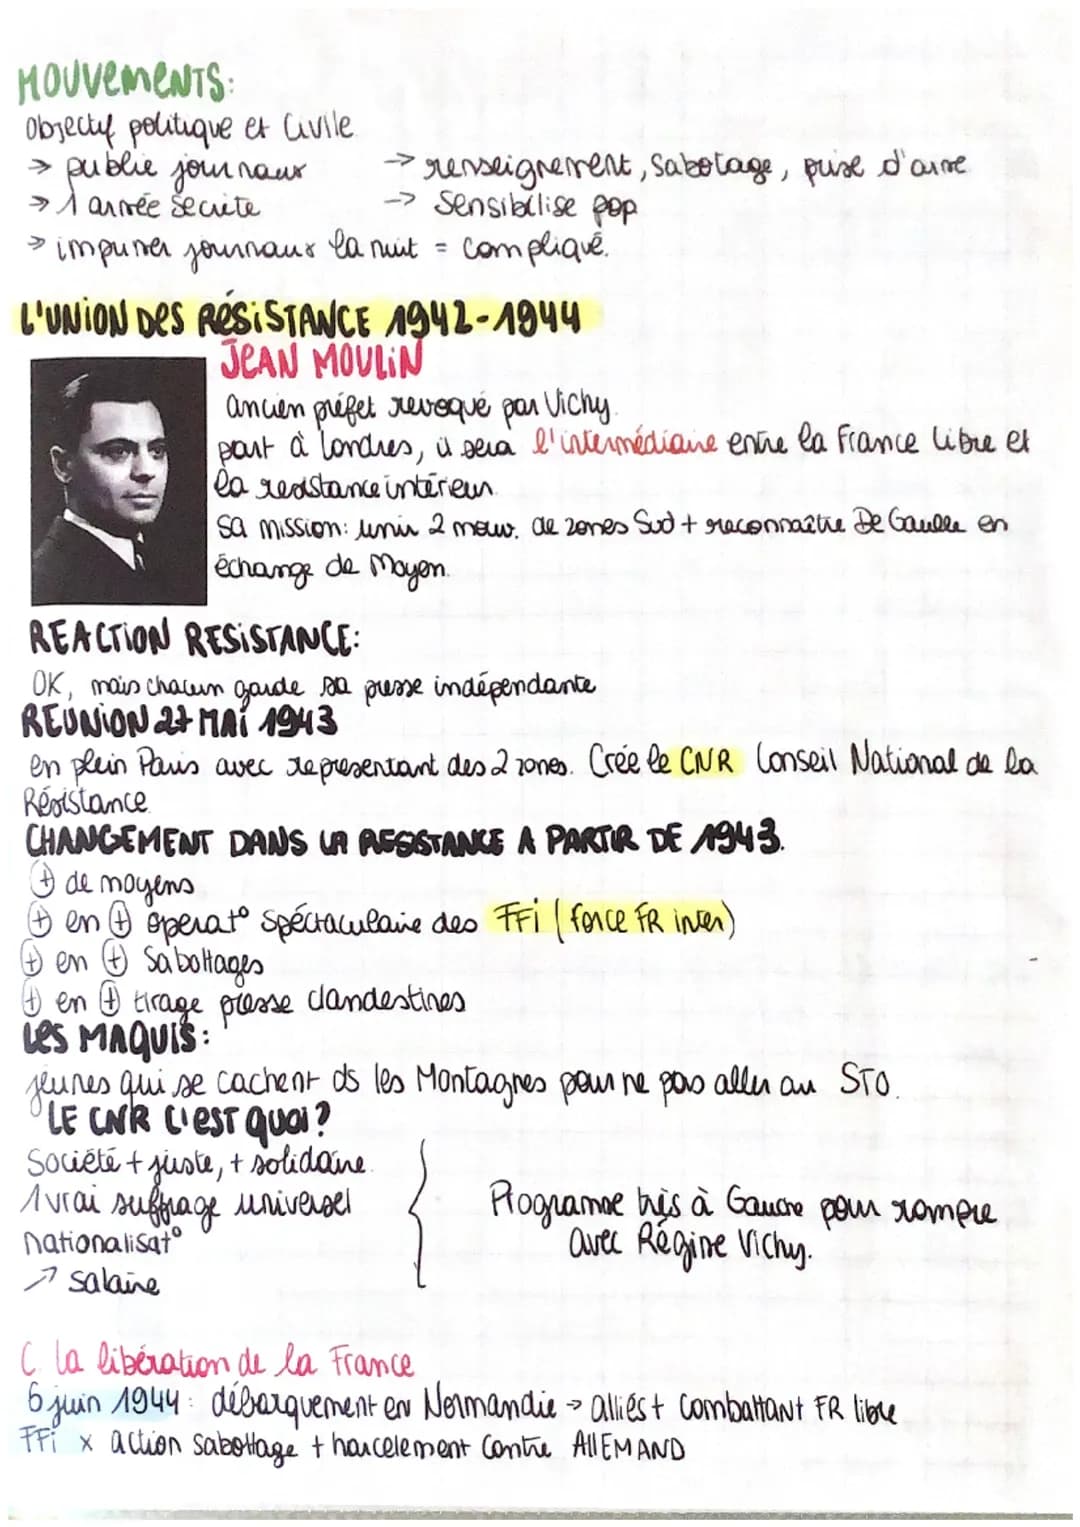 MOUVEMENTS:
Objectif politique et Civile.
→ publie journaux → renseignement, Sabotage, prise d'arme
→ 1 armée Secrite → Sensibilise pop
→ imprimer journaux la nuit = compliqué.
L'UNION DES RÉSISTANCE 1942-1944
JEAN MOULIN
ancien préfet revoqué par Vichy.
part à Londres, il sera l'intermédiaire entre la France Libre et
la resistance intérieur.
Sa mission: unir 2 mouv. de zones Sud + reconnaître De Gaulle en
échange de Moyen.
REACTION RESISTANCE:
OK, mais chacun garde sa presse indépendante
REUNION 27 MAI 1943
en plein Paris avec representant des 2 zones. Crée le CNR Conseil National de la
Résistance.
CHANGEMENT DANS LA RESISTANCE A PARTIR DE 1943.
⊕ de moyens
⊕ en ⊕ operat° Spéctaculaire des FFi (force FR inter)
⊕ en ⊕ Sabottages
⊕ en ⊕ tirage presse clandestines
LES MAQUIS:
jeunes qui se cachent ds les Montagnes pour ne pas aller au STO.
LE CNR C'EST QUOI?
Société + juste, + solidaire.
1 vrai suffrage universel
nationalisat°
↗ salaire
Programme très à Gauche pour rompre
avec Régime Vichy.
C. la libération de la France
6 juin 1944: débarquement en Normandie → alliés + Combattant FR libre
FFi x action Sabottage + harcelement Contre AllEMAND